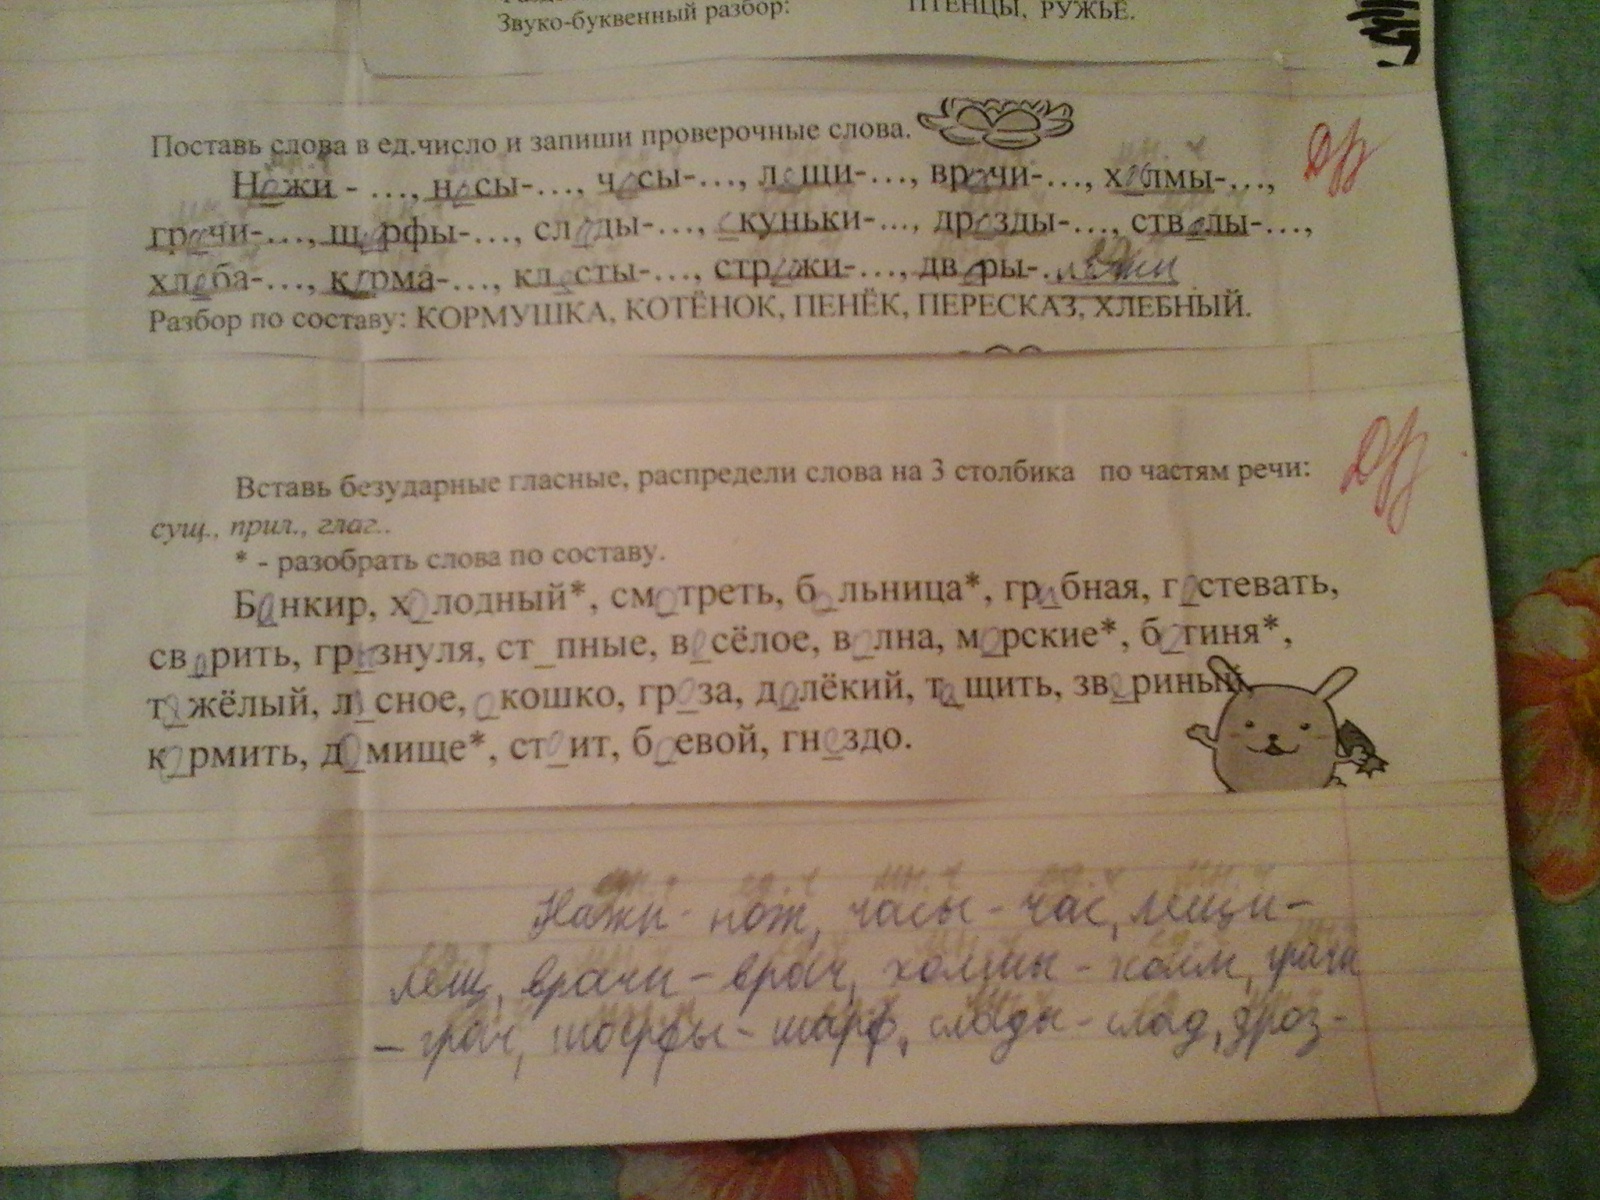 Звуко-буквенный разбор: ПТЕНЦЫ, РУЖЬЁ.
Поставь слова в ед.число и запиши проверочные слова.
Ножи - …, носы-…, часы-…, лещи-…, врачи-…, холмы-…,
грачи-…, шарфы-…, следы-…, окуньки-…, дрозды-…, стволы-…,
хлеба-…, корма-…, клесты-…, стрижи-…, дворы-
Разбор по составу: КОРМУШКА, КОТЁНОК, ПЕНЁК, ПЕРЕСКАЗ, ХЛЕБНЫЙ.
Др
Вставь безударные гласные, распредели слова на 3 столбика по частям речи:
сущ., прил., глаг..
* - разобрать слова по составу.
Банкир, холодный*, смотреть, больница*, грибная, гостевать,
сварить, грязнуля, ст_пные, весёлое, волна, морские*, ботиня*,
тяжёлый, лесное, окошко, гроза, далёкий, тащить, звериный,
кормить, домище*, стоит, боевой, гнездо.
Др
Нажи - нож, часы - час, лещи -
лещ, врачи - врач, холмы - холм, грачи
- грач, шарфы - шарф, слады - слад, дроз-